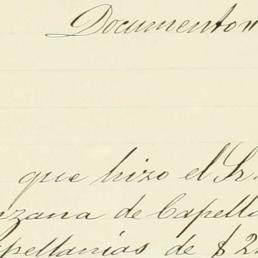 Documento
que hizo el Sr.
nzana de Capella
apellanías de $ 2